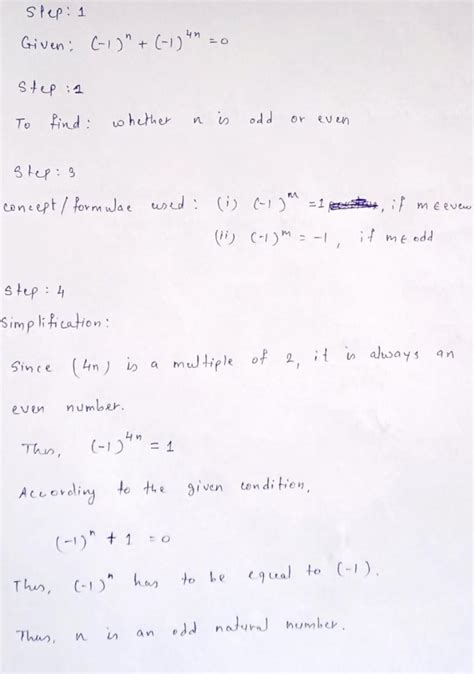 Step: 1
Given: (-1)^n + (-1)^4n = 0
Step: 2
To find: whether n is odd or even
Step: 3
concept/formulae used: (i) (-1)^m = 1, if m ∈ even
(ii) (-1)^m = -1, if m ∈ odd
Step: 4
Simplification:
Since (4n) is a multiple of 2, it is always an
even number.
Thus, (-1)^4n = 1
According to the given condition,
(-1)^n + 1 = 0
Thus, (-1)^n has to be equal to (-1).
Thus, n is an odd natural number.